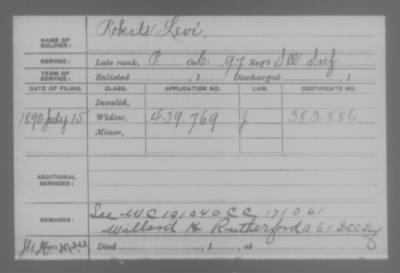 Roberts Levi,
NAME OF SOLDIER:
SERVICE: Late rank, P. Co. C. 97 Reg't Ill Inf
TERM OF SERVICE: Enlisted , 1 Discharged , 1
DATE OF FILING. CLASS. APPLICATION NO. LAW. CERTIFICATE NO.
Invalid,
1890 July 15 Widow, 439.769 J 383.886.
Minor,
ADDITIONAL SERVICES:
REMARKS: See WC 191040 CC 171061
Willard H Rutherford a 61 Ill Inf
Died , 1 , at